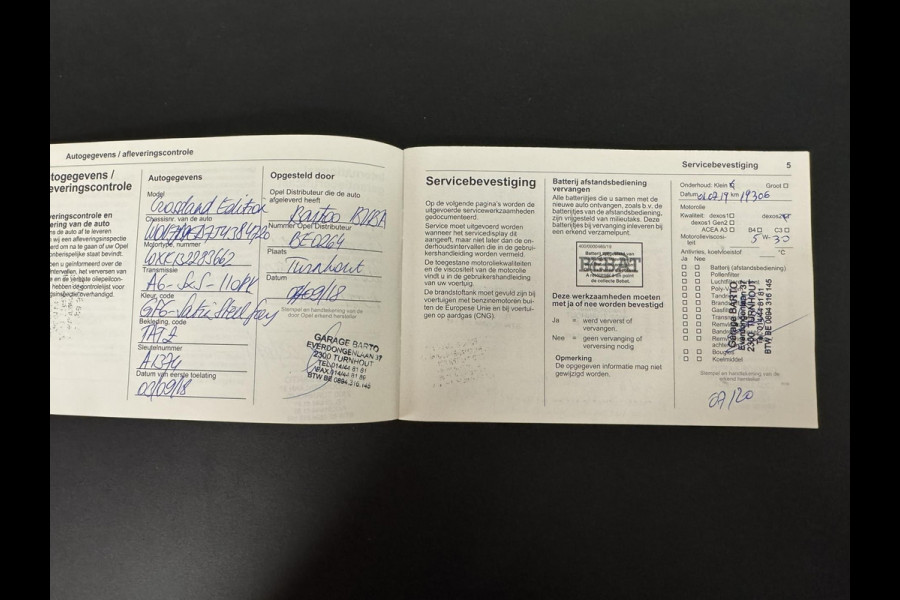 Autogegevens / afleveringscontrole
togegevens /
everingscontrole
veringscontrole en
ering van de auto
Autogegevens
Model
Crossland Edition
Chassisnr. van de auto
Motortype, nummer
Transmissie
A6-
Kleur, code
Bekleding, code
TAPZ
Sleutelnummer
A1374
Datum van eerste toelating
03/09/18
Opgesteld door
Opel Distributeur die de auto
afgeleverd heeft
Bartoo BVBA
Nummer Opel Distributeur
BE0264
Plaats
Turnhout
Datum
/09/18
Stempel en handtekening van de
door Opel erkend hersteller
GARAGE BARTO
EVERDONGENLAAN 37
2300 TURNHOUT
TEL.014/44 81 81
FAX.014/44 81 86
BTW BE 0884.316.145
Servicebevestiging 5
Servicebevestiging
Op de volgende pagina's worden de
uitgevoerde servicewerkzaamheden
gedocumenteerd.
Service moet uitgevoerd worden
wanneer het servicedisplay dit
aangeeft, maar niet later dan de on-
derhoudsintervallen die in de gebrui-
kershandleiding worden vermeld.
De toegestane motoroliekwaliteiten
en de viscositeit van de motorolie
vindt u in de gebruikershandleiding
van uw voertuig.
De brandstoftank moet gevuld zijn bij
voertuigen met benzinemotoren bui-
ten de Europese Unie en bij voertui-
gen op aardgas (CNG).
Batterij afstandsbediening
vervangen
Alle batterijtjes die u samen met de
nieuwe auto ontvangen, zoals b.v. de
batterijtjes van de afstandsbediening,
zijn vrijgesteld van milieutaks. Deze
batterijtjes bij vervanging inleveren bij
een erkend verzamelpunt.
BEBAT
de collecte Bebat.
Deze werkzaamheden moeten
met ja of nee worden bevestigd
Ja = werd ververst of
vervangen.
Nee = geen vervanging of
verversing nodig
Opmerking
De opgegeven informatie mag niet
gewijzigd worden.
Onderhoud: Klein Groot
Datum 01.07.19 km 19306
Motorolie
Kwaliteit: dexos1 dexos2
dexos1 Gen2
ACEA A3 B4 C3
Motorolieviscosi-
teit 5 W- 30
Antivries, koelvloeistof °C
Ja Nee
Batterij (afstandsbediening)
Pollenfilter
Bougies
Koelmiddel
Garage BARTO
Everdongenlaan 37
2300 TURNHOUT
Tel.014/44 81 81
BTW BE 0884 316 145
Stempel en handtekening van de
erkend hersteller
07/20